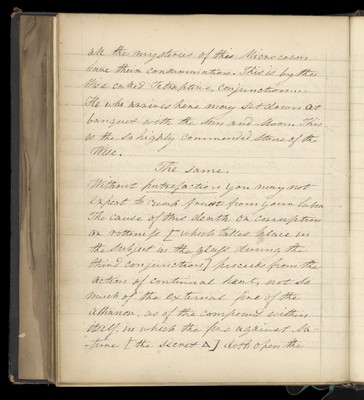 all the mysteries of this Microcosm
have their consummation. This is by the
Wise called Tetraptive conjunctione.
He who arrives here may sit down at
banquet with the Sun and Moon. This
is the so highly commended stone of the
Wise.
The same.
Without putrefaction you may not
expect to reach fruit from your labor
The cause of this death or corruption
or rottenness [which takes place in
the subject in the glass during the
third conjunction] proceeds from the
action of continual heat, not so
much of the external fire of the
athanor, as of the compound within
itself, in which the fire against na-
-ture [the secret Δ] doth open the